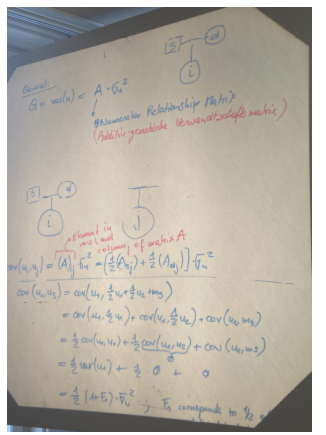 General:
G = var(u) = A · σu²
Numerator Relationship Matrix
(Additiv genetische Verwandtschaftsmatrix)
s d
i
s d
i
j
Element in row i and
column j of matrix A
cov(ui, uj) = (A)ij σu² = [½(A)sj + ½(A)dj] · σu²
cov(u1, u3) = cov(u1, ½u1 + ½u2 + m3)
= cov(u1, ½u1) + cov(u1, ½u2) + cov(u1, m3)
= ½ cov(u1, u1) + ½ cov(u1, u2) + cov(u1, m3)
= ½ var(u1) + ½ · 0 + 0
= ½ (1+F1) · σu² ; F1 corresponds to ½ of